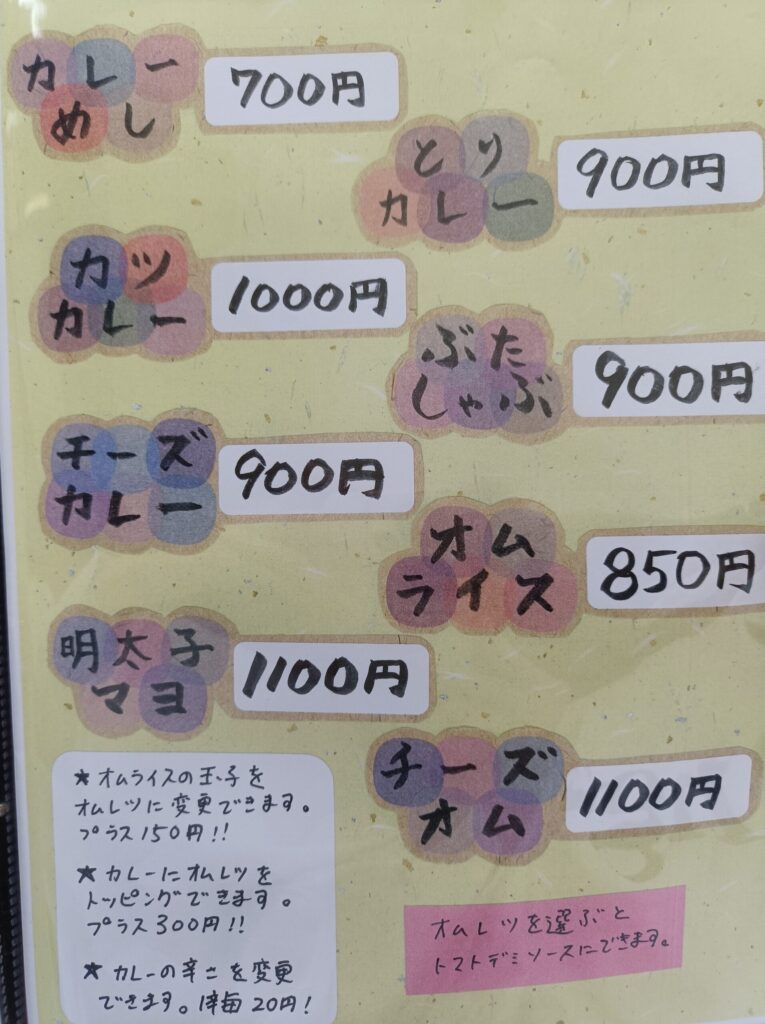 カレー
めし
700円
とり
カレー
900円
カツ
カレー
1000円
ぶた
しゃぶ
900円
チーズ
カレー
900円
オム
ライス
850円
明太子
マヨ
1100円
チーズ
オム
1100円
★オムライスの玉子を
オムレツに変更できます。
プラス150円!!
★カレーにオムレツを
トッピングできます。
プラス300円!!
★カレーの辛さを変更
できます。1辛毎20円!
オムレツを選ぶと
トマトデミソースにできます。